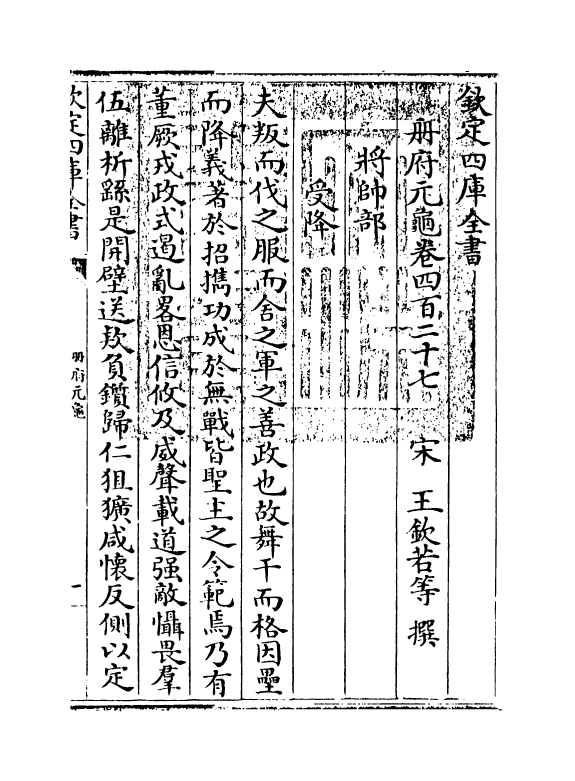 欽定四庫全書
冊府元龜卷四百二十七　宋　王欽若等　撰
將帥部
受降
夫叛而伐之服而舍之軍之善政也故舞干而格因壘
而降義著於招携功成於無戰皆聖主之令範焉乃有
董厥戎政式遏亂畧恩信攸及威聲載道强敵懾畏羣
伍離析繇是開壁送欵負鑕歸仁狙獷咸懷反側以定
欽定四庫全書
冊府元龜
一